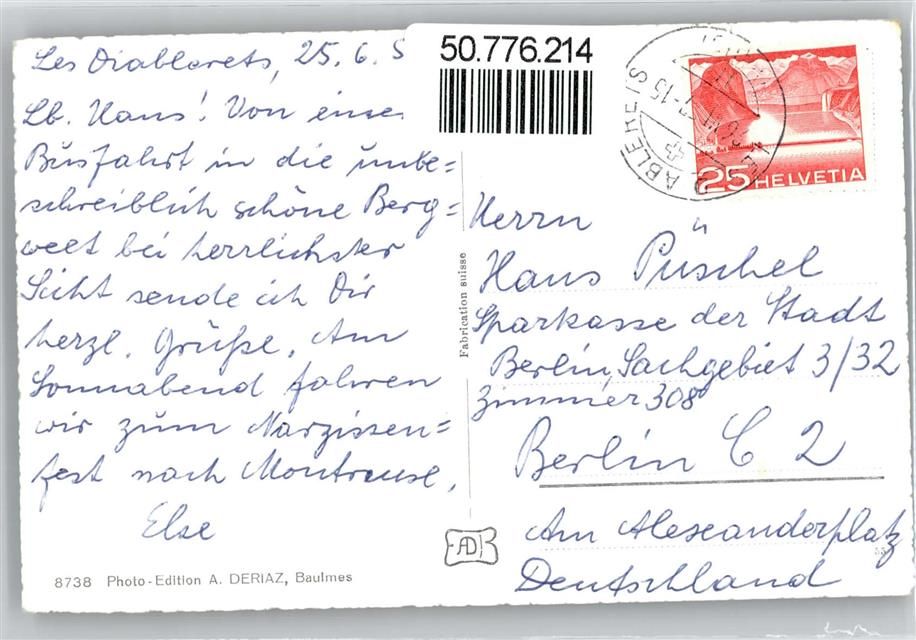 Les Diablerets, 25. 6. 5
Lb. Hans! Von einer
Busfahrt in die unbe=
schreiblich schöne Berg=
welt bei herrlichster
Sicht sende ich Dir
herzl. Grüße. Am
Sonnabend fahren
wir zum Narzissen=
fest nach Montreuse,
Else
8738 Photo-Edition A. DERIAZ, Baulmes
Fabrication suisse
AD
50.776.214
25 HELVETIA
Herrn
Hans Püschel
Sparkasse der Stadt
Berlin, Sachgebiet 3/32
Zimmer 308
Berlin C 2
Am Alexanderplatz
Deutschland